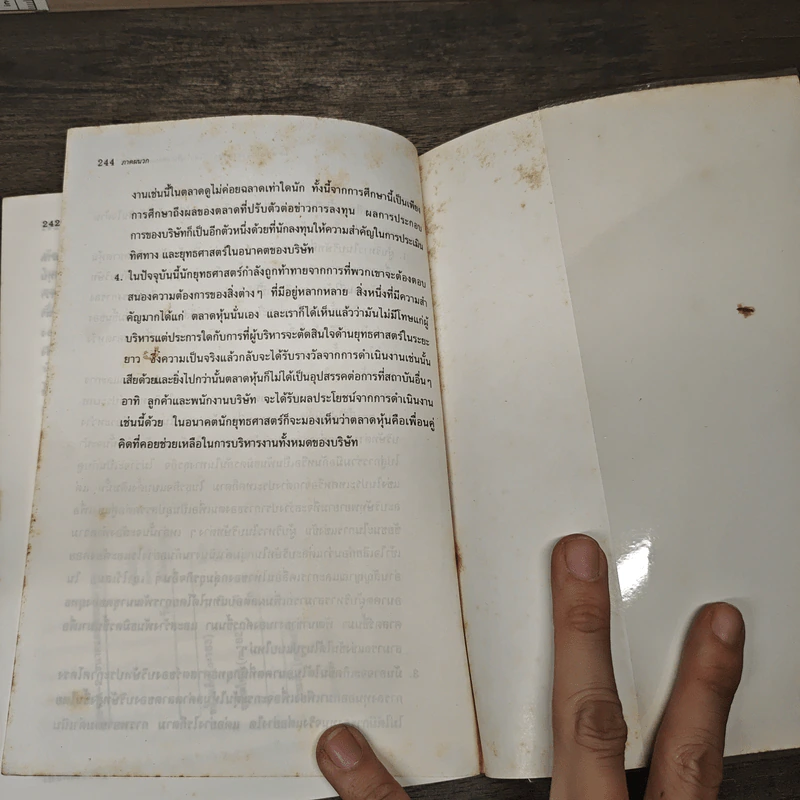 244 ภาคผนวก
งานเช่นนี้ในตลาดดูไม่ค่อยฉลาดเท่าใดนัก ทั้งนี้จากการศึกษานี้เป็นเพียง
การศึกษาถึงผลของตลาดที่ปรับตัวต่อข่าวการลงทุน ผลการประกอบ
การของบริษัทก็เป็นอีกตัวหนึ่งด้วยที่นักลงทุนให้ความสำคัญในการประเมิน
ทิศทาง และยุทธศาสตร์ในอนาคตของบริษัท
4. ในปัจจุบันนี้นักยุทธศาสตร์กำลังถูกท้าทายจากการที่พวกเขาจะต้องตอบ
สนองความต้องการของสิ่งต่างๆ ที่มีอยู่หลากหลาย สิ่งหนึ่งที่มีความสำ
คัญมากได้แก่ ตลาดหุ้นนั่นเอง และเราก็ได้เห็นแล้วว่ามันไม่มีโทษแก่ผู้
บริหารแต่ประการใดกับการที่ผู้บริหารจะตัดสินใจด้านยุทธศาสตร์ในระยะ
ยาว ซึ่งความเป็นจริงแล้วกลับจะได้รับรางวัลจากการดำเนินงานเช่นนั้น
เสียด้วยและยิ่งไปกว่านั้นตลาดหุ้นก็ไม่ได้เป็นอุปสรรคต่อการที่สถาบันอื่นๆ
อาทิ ลูกค้าและพนักงานบริษัท จะได้รับผลประโยชน์จากการดำเนินงาน
เช่นนี้ด้วย ในอนาคตนักยุทธศาสตร์ก็จะมองเห็นว่าตลาดหุ้นคือเพื่อนคู่
คิดที่คอยช่วยเหลือในการบริหารงานทั้งหมดของบริษัท
242